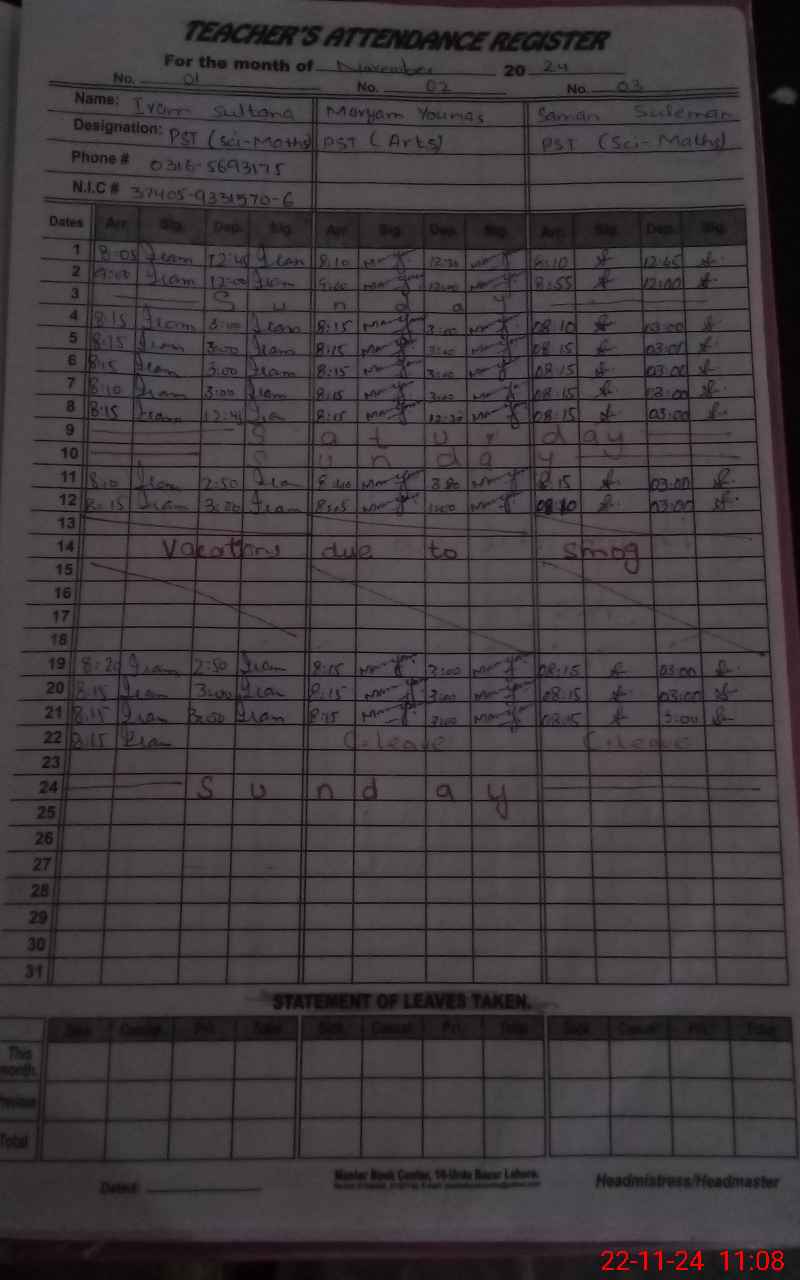 TEACHER'S ATTENDANCE REGISTER
For the month of November 20 24
No. 01 No. 02 No. 03
Name: Iram Sultana Maryam Younas Saman Suleman
Designation: PST (Sci-Maths) PST (Arts) PST (Sci-Maths)
Phone # 0316-5693175
N.I.C # 37405-9331570-6
Dates Arr. Sig. Dep. Sig. Arr. Sig. Dep. Sig. Arr. Sig. Dep. Sig.
1 8:05 Iram 12:40 Iram 8:10 12:30 8:10 12:45
2 9:00 Iram 12:00 Iram 9:00 12:00 8:55 12:00
3 Sunday
4 8:15 Iram 3:00 Iram 8:15 3:00 08:10 03:00
5 8:15 Iram 3:00 Iram 8:15 3:00 08:15 03:01
6 8:15 Iram 3:00 Iram 8:15 3:00 08:15 03:00
7 8:10 Iram 3:00 Iram 8:15 3:00 08:15 03:00
8 8:15 Iram 12:4 Iram 8:15 12:30 08:15 03:00
9 Saturday
10 Sunday
11 8:10 Iram 2:50 Iram 8:15 03:00
12 8:15 Iram 3:00 Iram 8:05 08:10 03:00
13
14 Vacations due to smog
15
16
17
18
19 8:20 Iram 2:50 Iram 8:15 3:00 08:15 03:00
20 8:15 Iram 3:00 Iram 8:15 3:00 08:15 03:00
21 8:15 Iram 3:00 Iram 8:15 3:00 08:15 3:00
22 8:15 Iram C.leave C.leave
23
24 Sunday
25
26
27
28
29
30
31
STATEMENT OF LEAVES TAKEN.
Sick Casual Pri. Total Sick Casual Pri. Total Sick Casual Pri. Total
This month
Previous
Total
Dated: Master Book Center, 16-Urdu Bazar Lahore. Headmistress/Headmaster
22-11-24 11:08